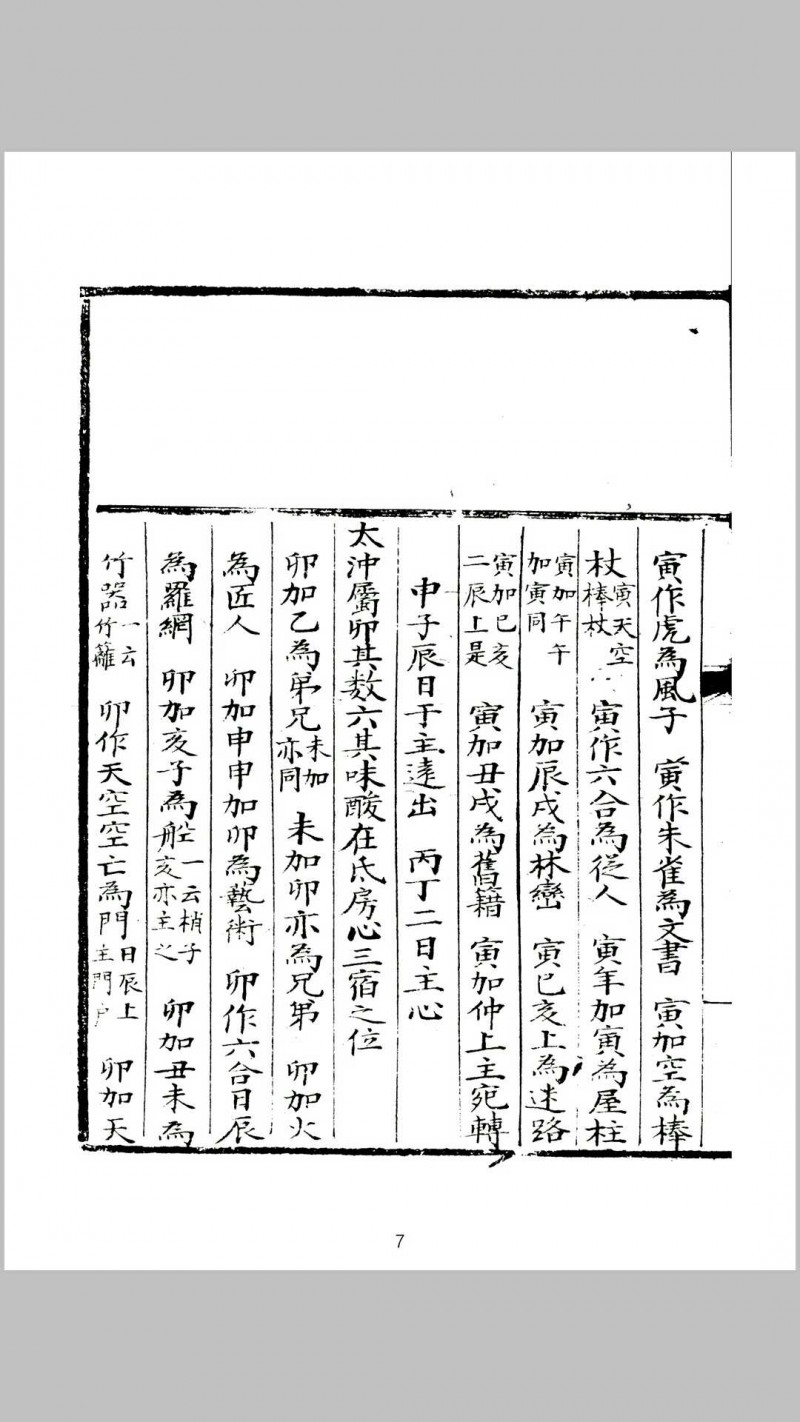 寅作虎為風子　寅作朱雀為文書　寅加空為棒
杖寅天空棒杖　寅作六合為從人　寅年加寅為屋柱
寅加午午加寅同　寅加辰戌為林巒　寅巳亥上為迷路
寅加巳亥二辰上是　寅加丑戌為舊籍　寅加仲上主宛轉
申子辰日于主遠出　丙丁二日主心
太沖屬卯其数六其味酸在氐房心三宿之位
卯加乙為弟兄未加亦同　未加卯亦為兄弟　卯加火
為匠人　卯加申申加卯為藝術　卯作六合日辰
為羅網　卯加亥子為舡一云梢子亥亦主之　卯加丑未為
竹器一云竹籬　卯作天空空亡為門日辰上主門户　卯加天
7